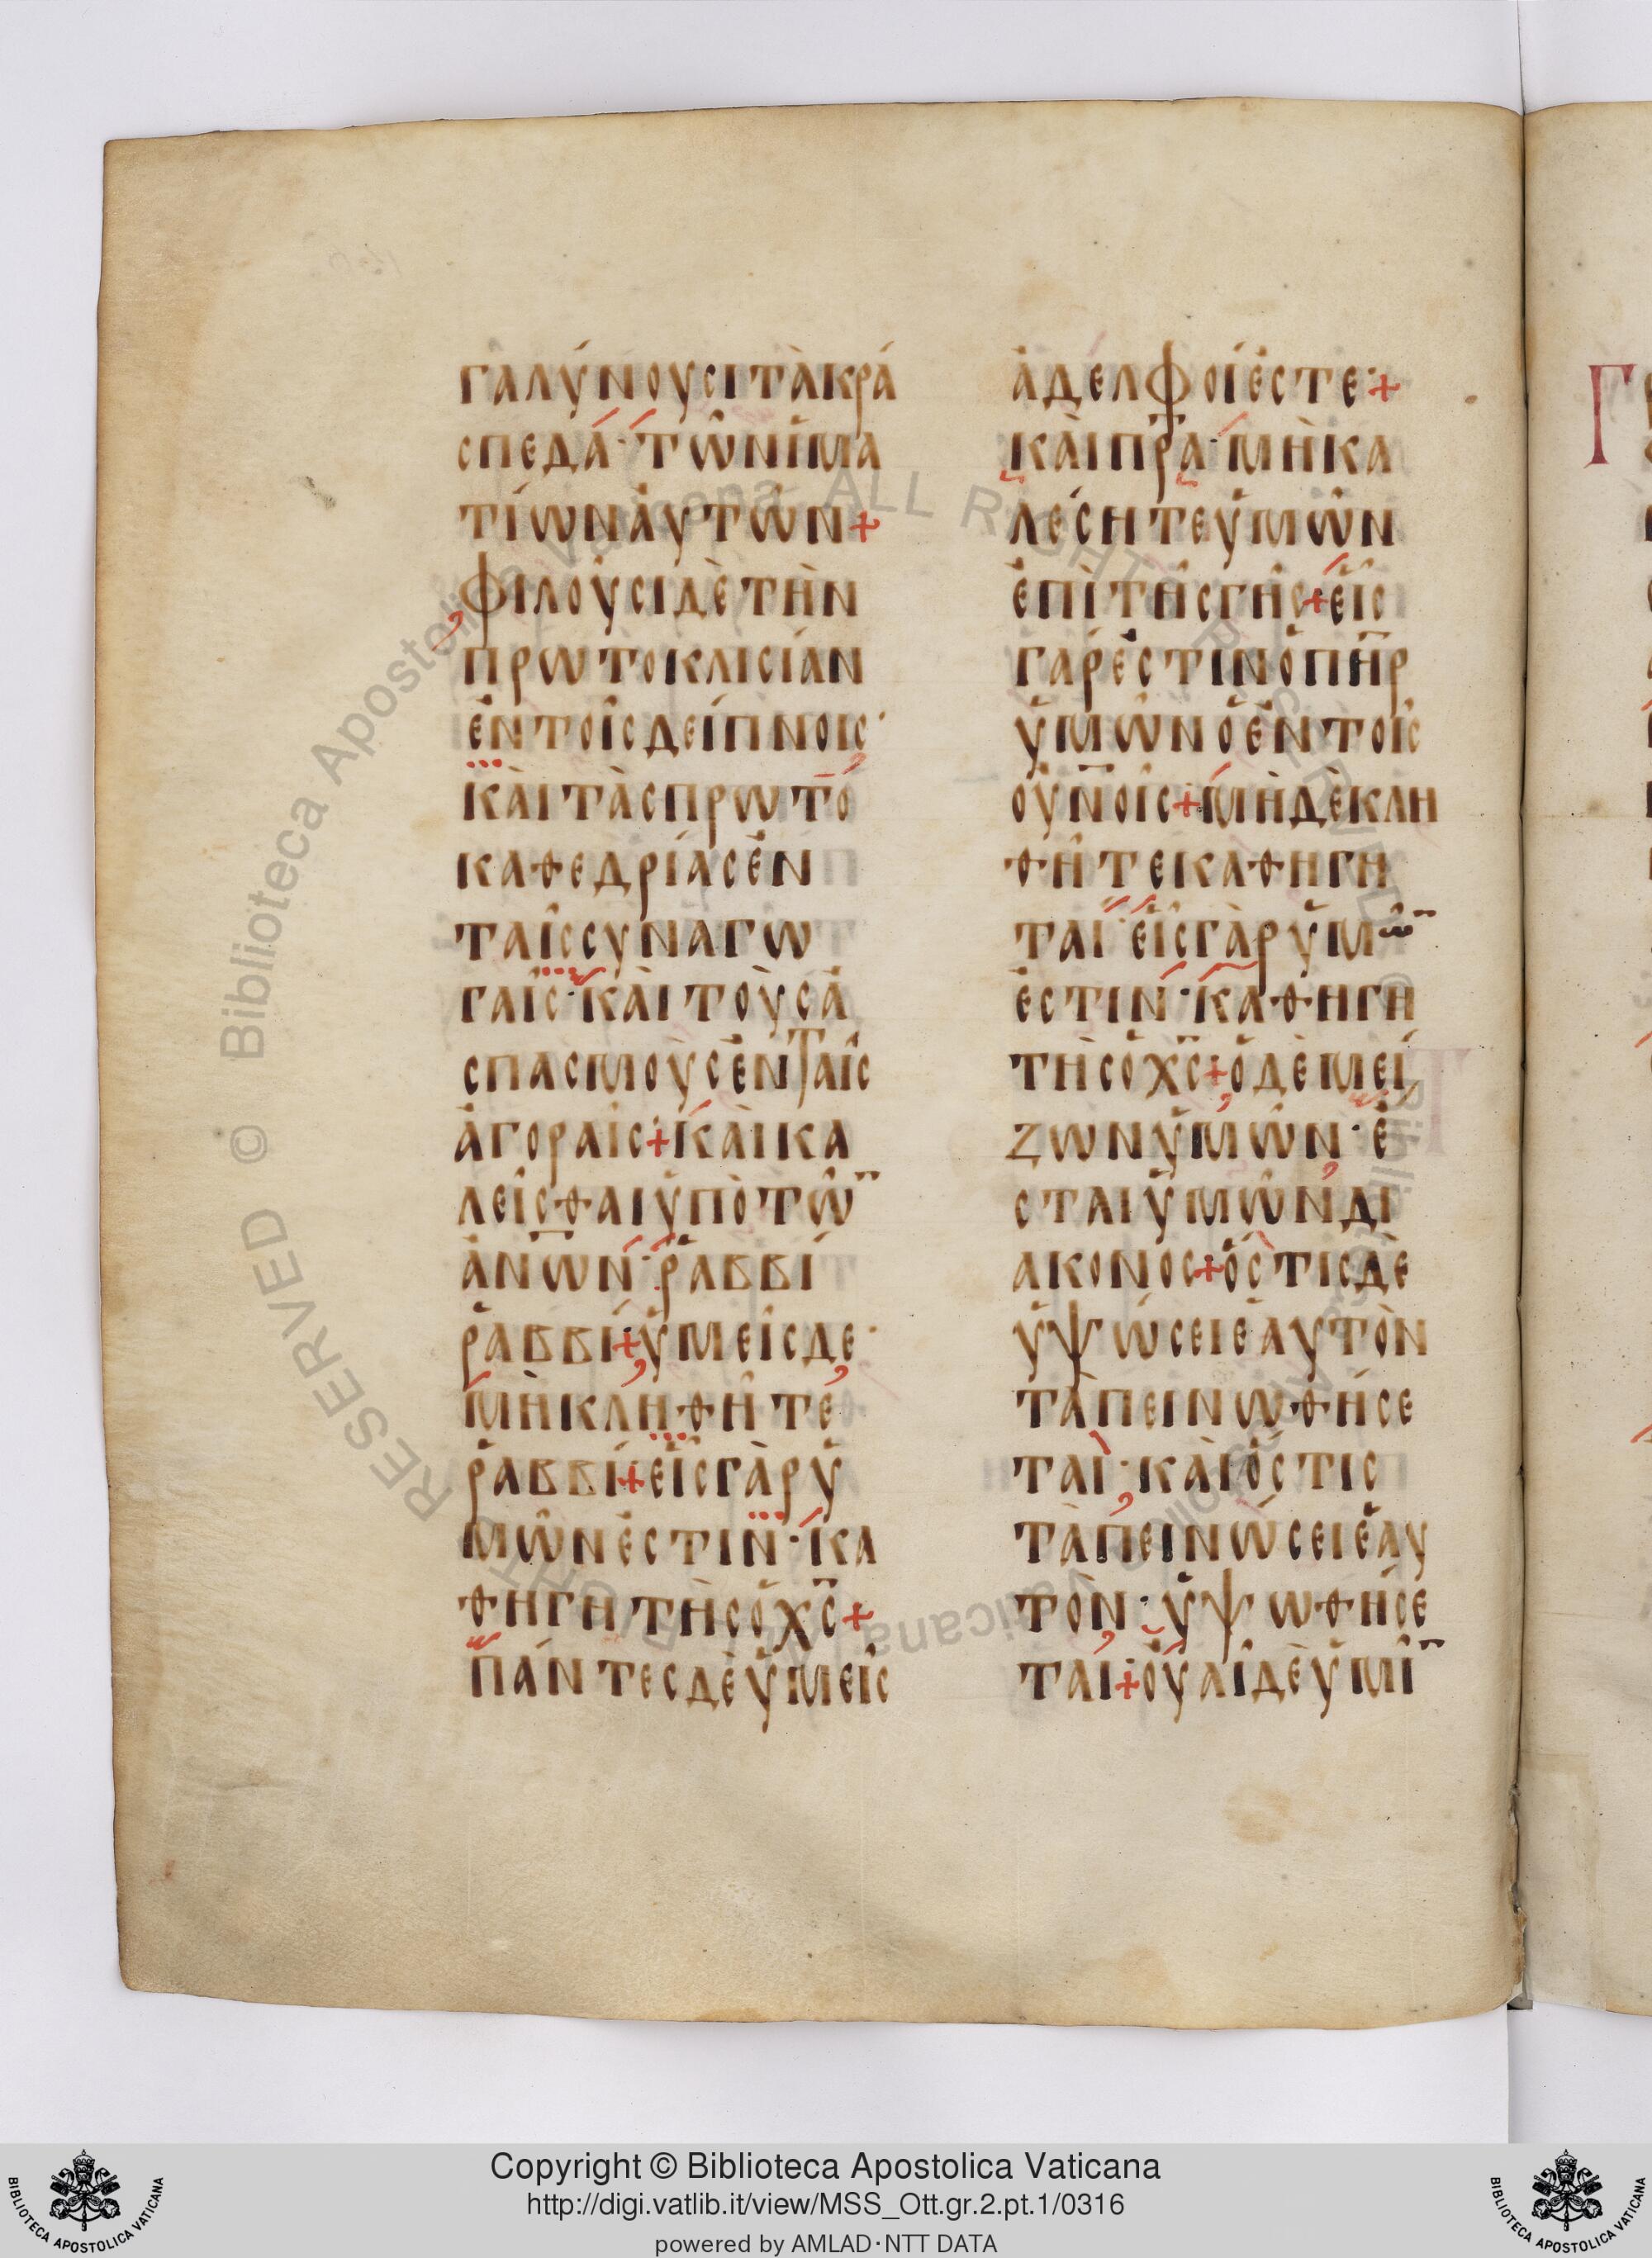 γαλύνουσι τὰ κρά
σπεδά· τῶν ἱμα
τίων ἀυτῶν+
φιλοῦσι δὲ τὴν
πρωτοκλισίαν
ἐν τοῖς δείπνοις·
κὰι τὰς πρωτο
καθεδρίας ἐν
ταῖς συναγω
γαῖς· κὰι τοὺς ἀ
σπασμοὺς ἐν ταῖς
ἀγοραῖς+ κὰι κα
λεῖσθαι ὑπὸ τῶ̅
ἀν̅ων· ῥαββί
ῥαββί+ ὑμεῖς δε·
μὴ κληθῆτε
ῥαββί+ εἷς γὰρ ὑ
μῶν ἐστιν· κα
θηγητὴς ὁ χ̅ς+
πάντες δὲ ὑμεῖς
ἀδελφοί ἐστε·+
κὰι πρ̅α· μὴ κα
λέσητε ὑμῶν
ἐπὶ τῆς γῆς+ εἷς
γάρ ἐστιν ὁ πη̅ρ
ὑμῶν ὁ ἐν τοῖς
οὐν̅οῖς+ μὴ δὲ κλη
θῆτε καθηγη
ταί· εἷς γὰρ ὑμῶ̅
ἐστιν· καθηγη
τὴς ὁ χ̅ς+ ὁ δὲ μεί
ζων ὑμῶν· ἔ
σται ὑμῶν δι
άκονος+ ὅς τις δὲ
ὑψώσει ἑαυτὸν
ταπεινωθήσε
ται· κὰι ὅς τις
ταπεινώσει ἑαυ
τὸν· ὑψωθήσε
ται+ οὐαὶ δὲ ὑμῖ̅
Copyright © Biblioteca Apostolica Vaticana
http://digi.vatlib.it/view/MSS_Ott.gr.2.pt.1/0316
powered by AMLAD·NTT DATA
BIBLIOTECA APOSTOLICA VATICANA
BIBLIOTECA APOSTOLICA VATICANA